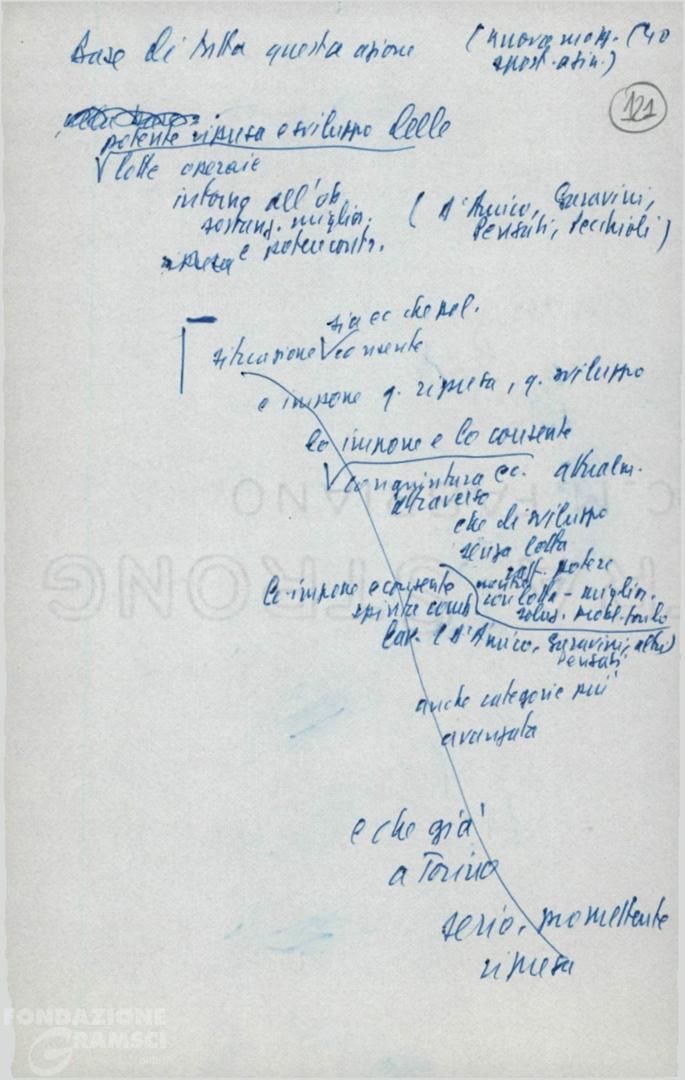 Base di tutta questa azione (nuova magg. (40
spost. a sin.)
121
potente ripresa e sviluppo delle
lotte operaie
intorno all'ob.
sostanz. miglior. (D'Amico, Garavini,
Pensati, Pecchioli)
e potere contr.
sia ec che pol.
situazione consente
e impone q. ripresa, q. sviluppo
lo impone e lo consente
congiuntura ec. attualm.
attraverso
che di sviluppo
senza lotta
raff. potere
lo impone e consente con lotte - miglior.
spirito comb
lav. (D'Amico, Garavini, altri)
Pensati
anche categorie più
avanzata
e che già
a Torino
serio, promettente
ripresa
FONDAZIONE
GRAMSCI